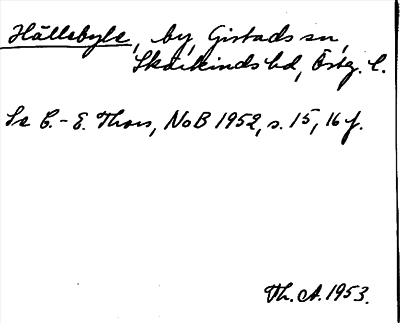 Hällabyle, by, Gistads sn,
Skärkinds hd, Östg. l.
Se C.-E. Thors, NoB 1952, s. 15, 16 f.
Th. A. 1953.